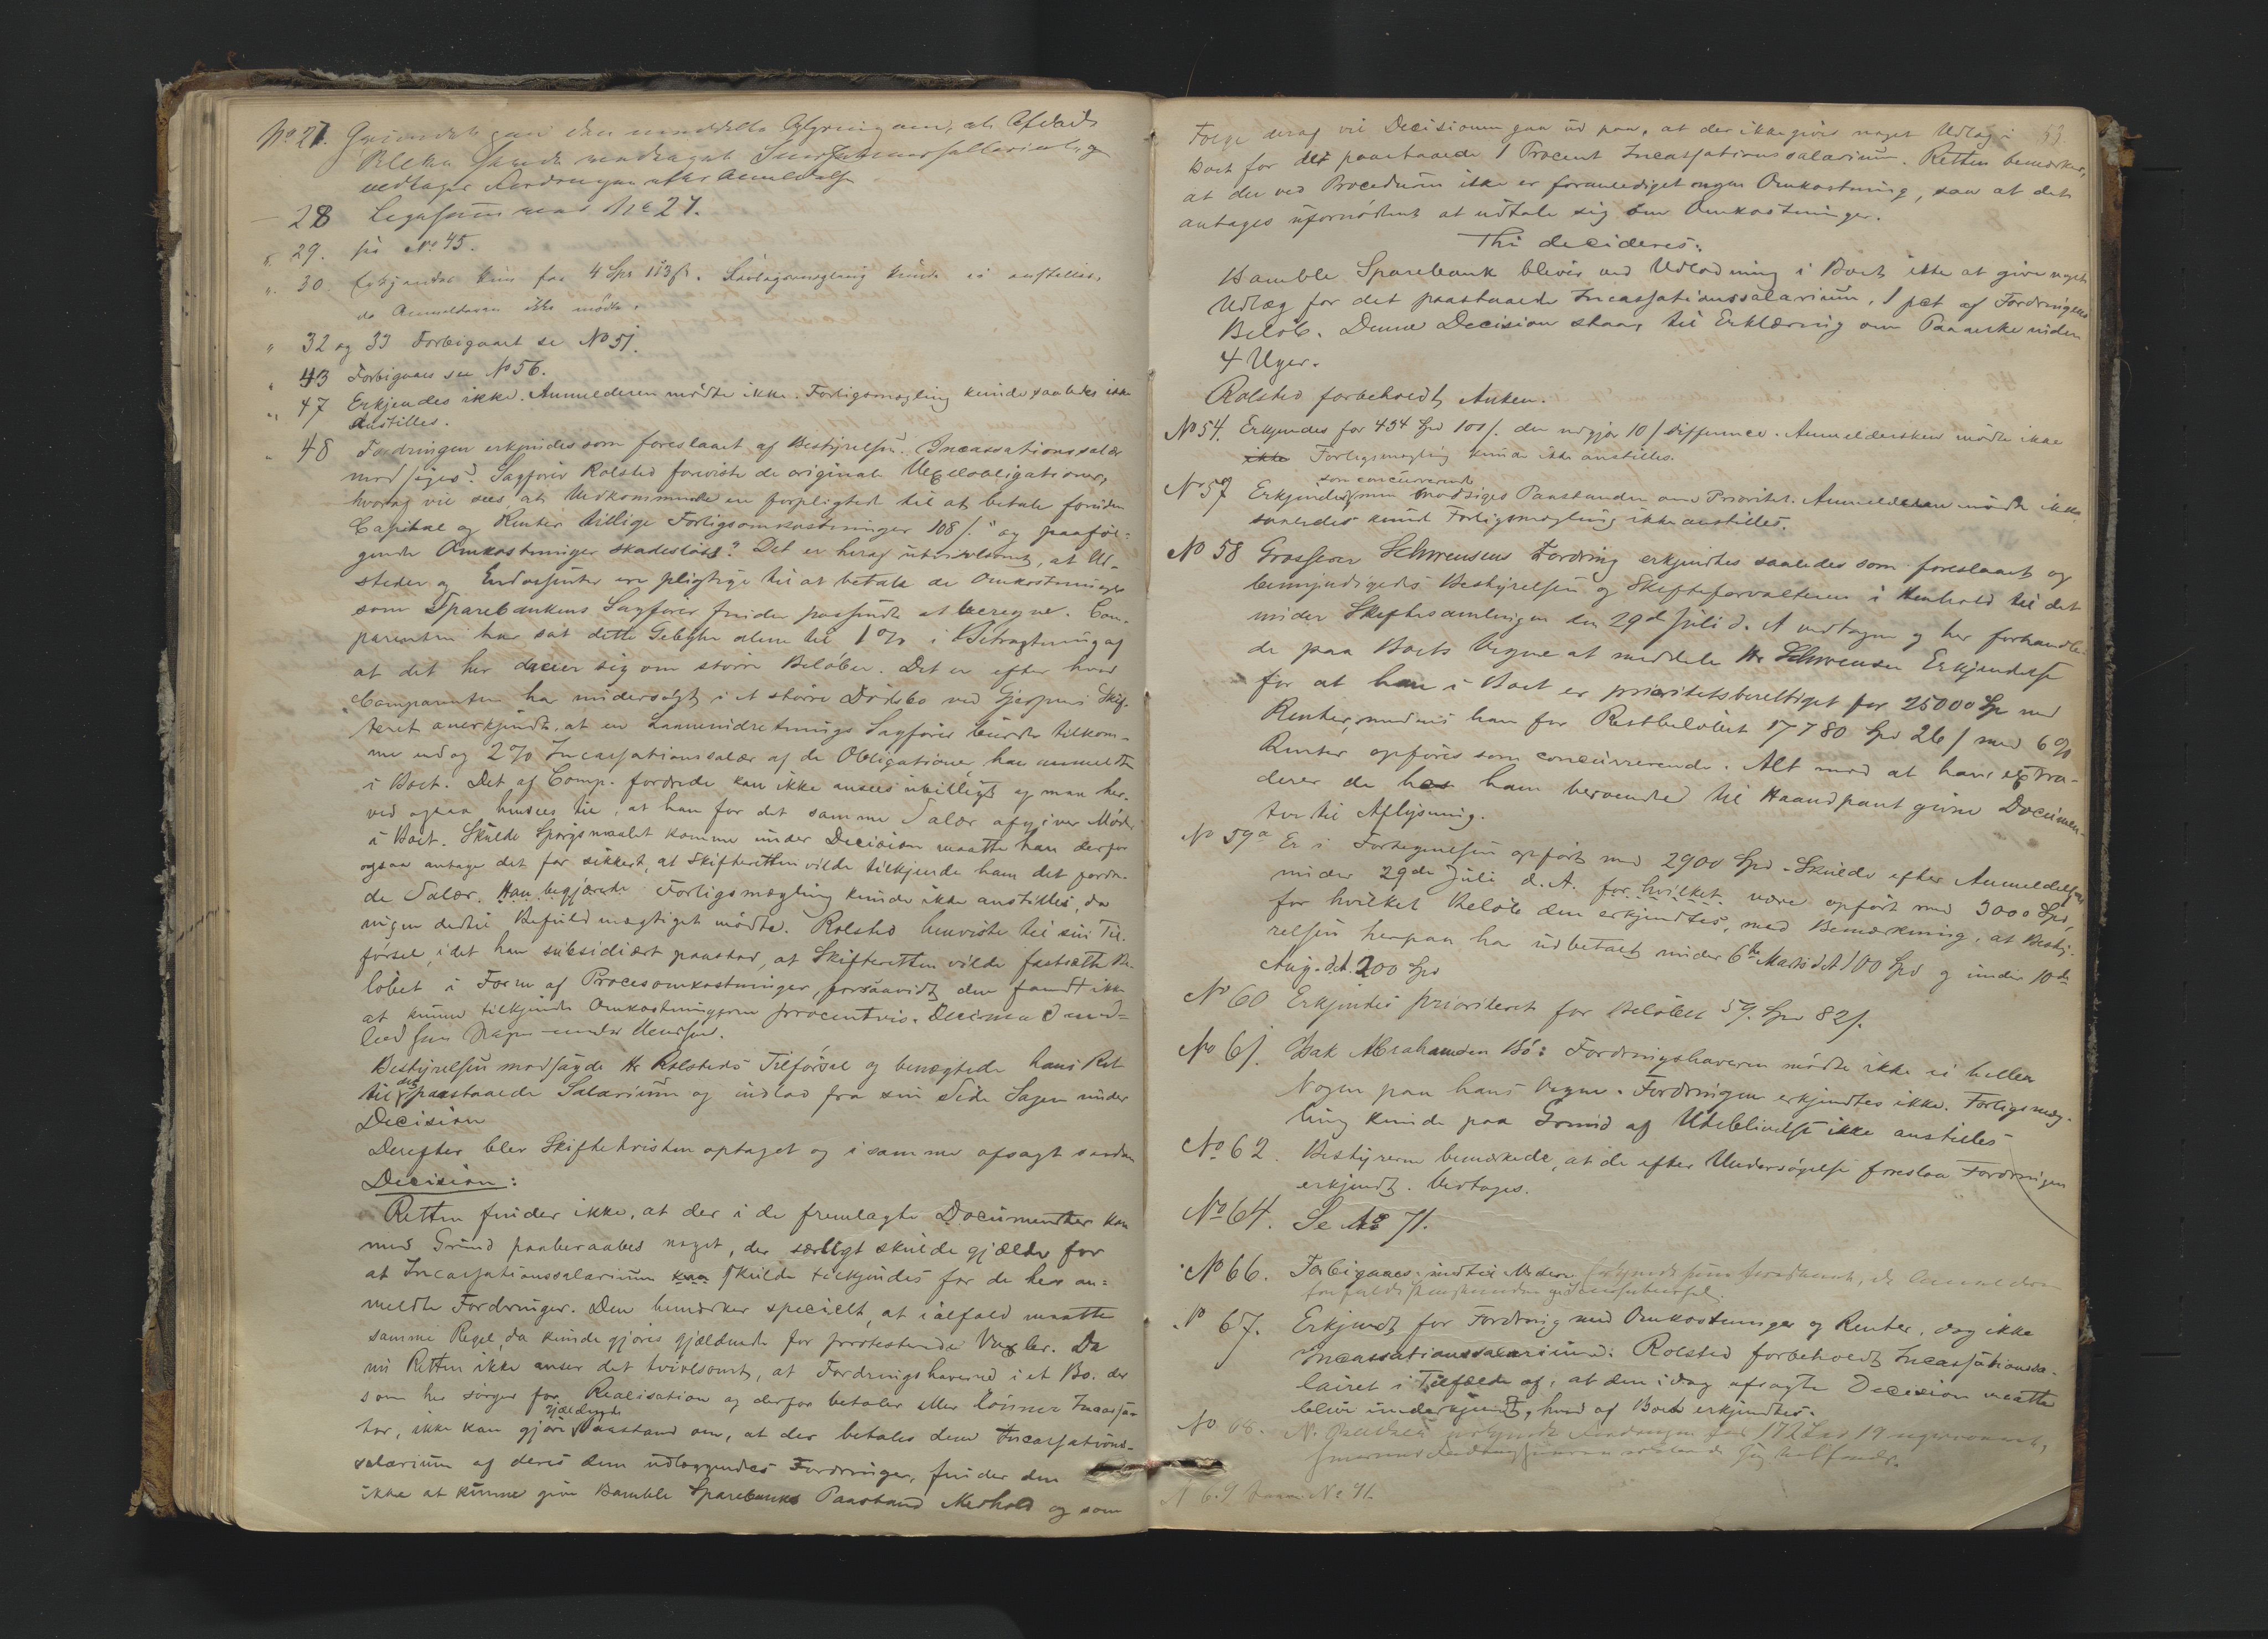 No 27.
vedtager Fordringen efter Anmeldelse
28 Ligesaa som No 27.
" 29. se No 45.
" 30. Erkjendes kun for 4 Spd 113 s. Forligsmægling kunde ei anstilles,
da Anmelderen ikke mødte.
" 32 og 33 Forbigaaet se No 51.
" 43 Forbigaaes see No 56.
" 47 Erkjendes ikke. Anmelderen mödte ikke. Forligsmægling kunde saaledes ikke
anstilles.
" 48 Fordringen erkjendes som foreslaaet af Bestyrelsen. Incassationssalær
modsiges. Sagförer Rolsted foreviste de originale Vexelobligationer,
hvoraf vil sees at Vedkommende er forpligtede til at betale foruden
Capital og Renter tillige Forligsomkostninger 108 s. og paaföl-
gende Omkostninger skadeslöst. Det er heraf utvivlsomt, at Ud-
steder og Endossenter ere pligtige til at betale de Omkostninger
som Sparebankens Sagförer finder passende at beregne. Com-
parenten har sat dette Gebyhr alene til 1 % i Betragtning af
at det her dreier sig om större Belöber. Det er efter hvad
Comparenten har undersögt i et större Dödsbo ved Gjerpens Skif-
teret anerkjendt, at en Laaneindretnings Sagförer burde tilkom-
me endog 2 % Incassationssalær af de Obligationer, han anmeldte
i Boet. Det af Comp. fordrede kan ikke ansees ubilligt og man her-
ved ogsaa hensees til, at han for det samme Salær afgiver Möde
i Boet. Skulde Spörgsmaalet komme under Decision maatte han derfor
ogsaa antage det for sikkert, at Skifteretten vilde tilkjende ham det fordre-
de Salær. Han begjærede Forligsmægling kunde ikke anstilles, da
ingen dertil Befuldmægtiget mödte. Rolsted henviste til sin Til-
försel, idet han subsidiært paastod, at Skifteretten vilde fastsætte Be-
löbet i Form af Procesomkostninger, forsaavidt den fandt ikke
at kunne tilkjende Omkostningerne procentvis.
Bestyrelsen modsagde Hr Rolsteds Tilförsel og benægtede hans Ret
til det paastaaede Salarium og indlod fra sin Side Sagen under
Decision
Derefter blev Skiftetvisten optaget og i samme afsagt saadan
Decision:
Retten finder ikke, at der i de fremlagte Documenter kan
med Grund paaberaabes noget, der særligt skulde gjælde for
at Incassationssalarium kan skulde tilkjendes for de her an-
meldte Fordringer. Den bemærker specielt, at ialfald maatte
samme Regel da kunde gjöres gjældende for protesterede Vexler. Da
nu Retten ikke anser det tvivlsomt, at Fordringshaverne i et Bo, der
som her sörger for Realisation og derfor betaler eller lönner Incassa-
tor, ikke kan gjöre gjældende Paastand om, at der betales dem Incassations-
salarium af deres dem udlæggendes Fordringer, finder den
ikke at kunne give Bamble Sparebanks Paastand Medhold og som
53.
Fölge deraf vil Decisionen gaa ud paa, at der ikke gives noget Udlæg i
Boet for det paastaaede 1 Procent Incassationssalarium. Retten bemærker,
at der ved Proceduren ikke er foranlediget nogen Omkostning, saa at det
antages ufornödent at udtale sig om Omkostninger.
Thi decideres:
Bamble Sparebank bliver ved Udlodning i Boet ikke at give noget
Udlæg for det paastaaede Incassationssalarium, 1 pct af Fordringens
Belöb. Denne Decision staar til Erklæring om Paaanke inden
4 Uger.
Rolsted forbeholdt Anken.
No 54. Erkjendes for 434 Spd 100 s. der udgjör 10 s Differance. Anmelderen mödte ikke
ikke Forligsmægling kunde ikke anstilles.
No 57 Erkjendes som concurrerende men modsiges Paastanden om Prioritet. Anmelderen mödte ikke
saaledes kunde Forligsmægling ikke anstilles.
No 58 Grosserer Schwensens Fordring erkjendtes saaledes som foreslaaet og
bemyndigedes Bestyrelsen og Skifteforvalteren i Henhold til det
under Skiftesamlingen den 29de Juli d. A vedtagne og her forhandle-
de paa Boets Vegne at meddele Hr Schwensen Erkjendelse
for at han i Boet er prioritetsberettiget for 25000 Sp med
Renter, medens han for Restbelöbet 17780 Spd 26 s med 6 %
Renter opföres som concurrerende. Alt mod at han extra-
derer de hos ham beroende til Haandpant givne Documen-
ter til Aflysning.
No 59a Er i Fortegnelsen opfört med 2900 Spd. Skulde efter Anmeldelsen
under 29de Juli d. A. for hvilket være opfört med 3000 Spd,
for hvilket Belöb den erkjendtes, med Bemærkning, at Besty-
relsen herpaa har udbetalt under 6te Marts d.A 100 Spd og under 10de
Aug. d.A. 200 Spd
No 60 Erkjendes prioriteret for Belöbet 59. Spd 82 s.
No 61. Isak Abrahamsen Bö: Fordringshaveren mödte ikke ei heller
Nogen paa hans Vegne. Fordringen erkjendtes ikke. Forligsmæg-
ling kunde paa Grund af Udeblivelse ikke anstilles
No 62. Bestyrerne bemærkede, at de efter Undersögelse foreslaa Fordringen
erkjendt. Vedtages.
No 64. Se No 71.
No 66. Forbigaaes indtil videre
No 67. Erkjendt for Fordring med Omkostninger og Renter, dog ikke
Incassationssalarium: Rolsted forbeholdt Incassationssa-
lairet i Tilfælde af, at den idag afsagte Decision maatte
blive underkjendt, hvad af Boet erkjendtes.
No 68.
N 69 som No 41.